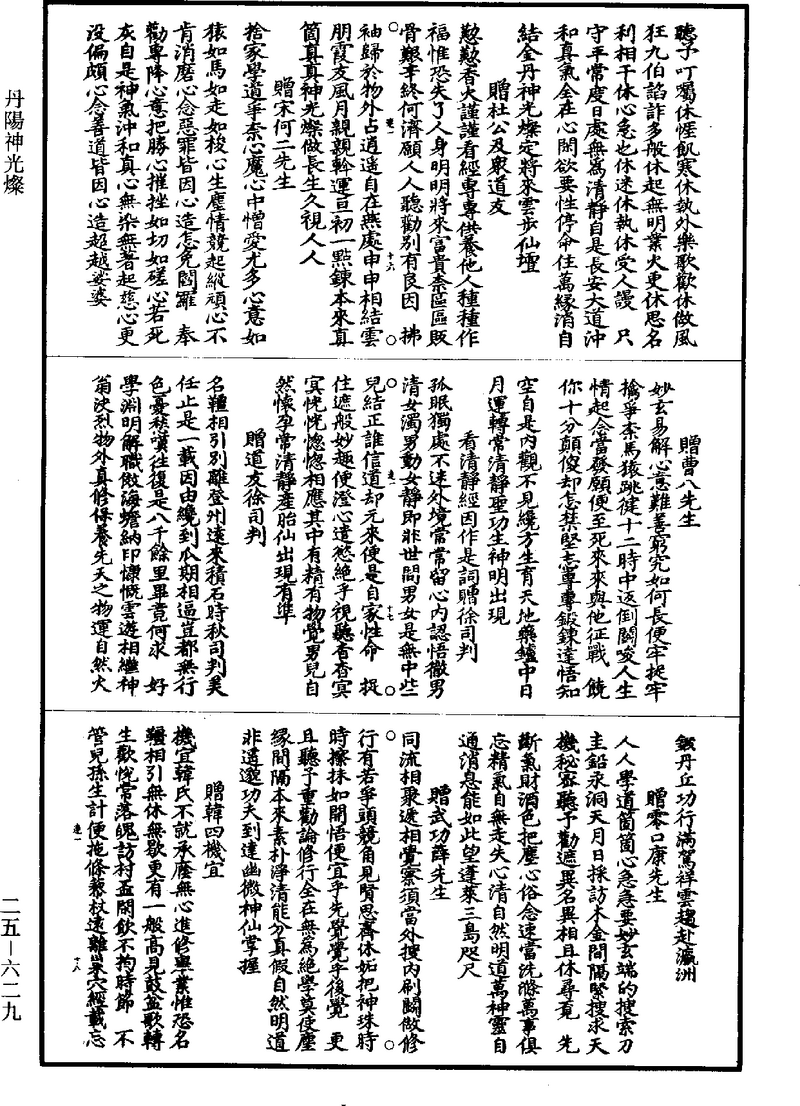 丹陽神光燦
聽予叮囑休慳飢寒休執外樂歌歡休做風
狂九伯諂詐多般休起無明業火更休思名
利相干休心急也休迷休執休受人謾　只
守平常度日處無為清靜自是長安大道沖
和真氣全在心閑欲要性停命住萬緣消自
結金丹神光燦定將來雲步仙壇
贈杜公及衆道友
懃懃香火謹謹看經專專供養他人種種作
福惟恐失了人身明明將來富貴柰區區販
骨艱辛終何濟願人人聽勸別有良因　拂
袖歸於物外占逍遥自在燕處申申相結雲
朋霞友風月親親斡運亘初一點鍊本來真
箇真真神光燦做長生久視人人
贈宋何二先生
捨家學道爭奈心魔心中憎愛尤多心意如
猿如馬如走如梭心生塵情競起縱頑心不
肯消磨心念惡罪皆因心造怎免閻羅　奉
勸專降心意把勝心摧挫如切如磋心若死
灰自是神氣沖和真心無染無著起慈心更
没偏頗心念善道皆因心造超越娑婆
贈曹八先生
妙玄易解心意難善窮究如何長便牢捉牢
擒爭柰馬猿跳健十二時中返倒鬭唆人生
情起念當發願便至死來來與他征戰　饒
你十分顛傻却怎禁堅志專專鍛鍊達悟知
空自是内觀不見纔方生育天地藥鑪中日
月運轉常清靜聖功生神明出現
看清靜經因作是詞贈徐司判
孤眠獨處不迷外境常常留心内認悟徹男
清女濁男動女靜即非世間男女是無中些
兒結正誰信道却元來便是自家性命　捉
住遮般妙趣便澄心遣慾絶乎視聽杳杳冥
冥恍恍惚惚相應其中有精有物覺男兒自
然懷孕常清靜產胎仙出現有準
贈道友徐司判
名韁相引別離登州遠來積石時秋司判美
任止是一載因由纔到瓜期相逼豈都無行
色憂愁嘆往復是八千餘里畢竟何求　好
學淵明解職倣海蟾納印慷慨雲遊相繼神
翁決烈物外真修保養先天之物運自然火
鍛丹丘功行滿駕祥雲趨赴瀛洲
贈零口康先生
人人學道箇箇心急急要妙玄端的搜索刀
圭鉛汞洞天月日採訪木金間隔緊搜求天
機秘密聽予勸遮異名異相且休尋覓　先
斷氣財酒色把塵心俗念速當洗滌萬事俱
忘精氣自無走失心清自然明道萬神靈自
通消息能如此望蓬萊三島咫尺
贈武功薛先生
同流相聚遞相覺察須當外搜内刷鬭做修
行有若爭頭競角見賢思齊休妬把神珠時
時擦抹如開悟便宜乎先覺覺乎後覺　更
且聽予重勸論修行全在無為絶學莫使塵
緣間隔本來素朴淨清能分真假自然明道
非遥邈功夫到達幽微神仙掌握
贈韓四機宜
機宜韓氏不就承廕無心進修舉業惟恐名
韁相引無休無歇更有一般高見鼓盆歌轉
生歡悦常落魄訪村盃閑飲不拘時節　不
管兒孫生計便拖條藜杖遠離巢穴經載忘
二五－六二九